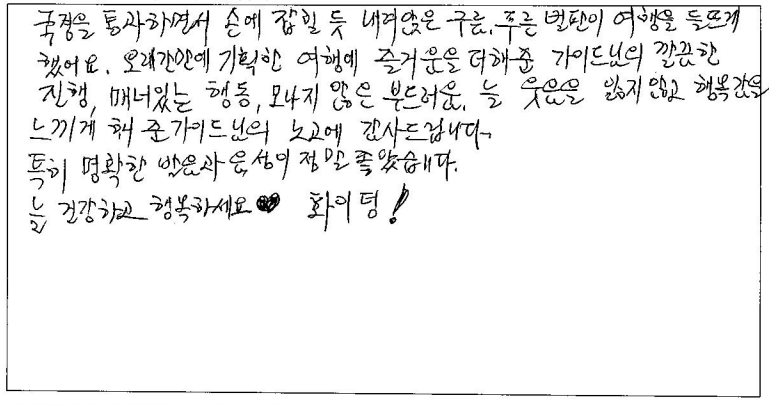 국경을 통과하면서 손에 잡힐 듯 내려앉은 구름, 푸른 벌판이 여행을 들뜨게
했어요. 오래간만에 기획한 여행에 즐거움을 더해준 가이드님의 깔끔한
진행, 매너있는 행동, 모나지 않은 부드러움, 늘 웃음을 잃지않고 행복감을
느끼게 해 준 가이드님의 노고에 감사드립니다.
특히 명확한 발음과 음성이 정말 좋았습니다.
늘 건강하고 행복하세요 ♥ 화이팅!